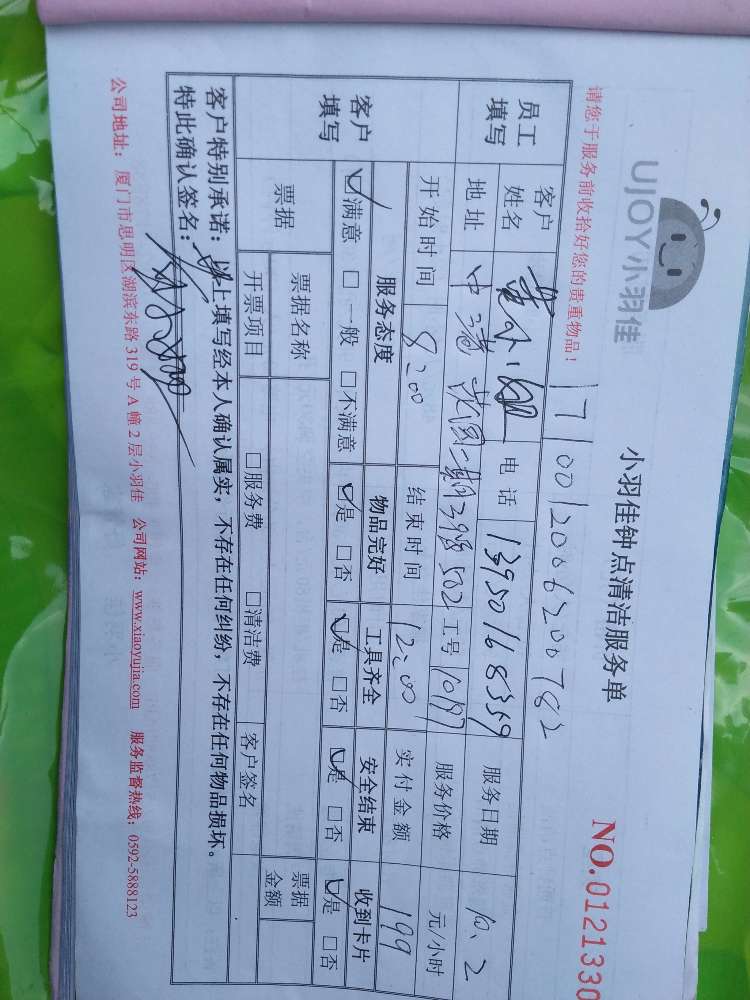 UJOY小羽佳
小羽佳钟点清洁服务单
NO.0121330
请您于服务前收拾好您的贵重物品！
1710012006200782
员工填写 客户姓名 电话 13950168359 服务日期 10.2
地址 二期 502 工号 服务价格 元/小时
开始时间 8:00 结束时间 12:00 实付金额 199
客户填写 服务态度 物品完好 工具齐全 安全结束 收到卡片
☑满意 □一般 □不满意 ☑是 □否 ☑是 □否 ☑是 □否 ☑是 □否
票据 票据名称 票据金额
开票项目 □服务费 □清洁费 客户签名
客户特别承诺：以上填写经本人确认属实，不存在任何纠纷，不存在任何物品损坏。
特此确认签名：
公司地址：厦门市思明区湖滨东路319号A幢2层小羽佳 公司网站：www.xiaoyujia.com 服务监督热线：0592-5888123